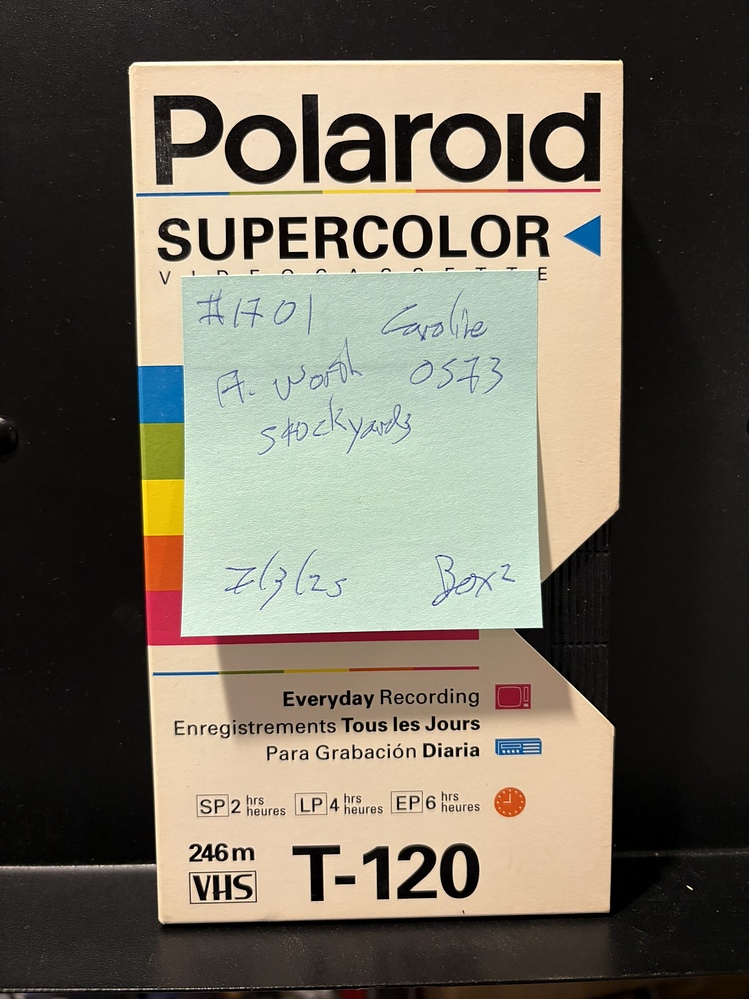 Polaroid
SUPERCOLOR
VIDEOCASSETTE
#1701 Caroline
Ft. Worth 0573
stockyards
7/3/25 Box 2
Everyday Recording
Enregistrements Tous les Jours
Para Grabación Diaria
SP 2 hrs heures LP 4 hrs heures EP 6 hrs heures
246m
VHS T-120